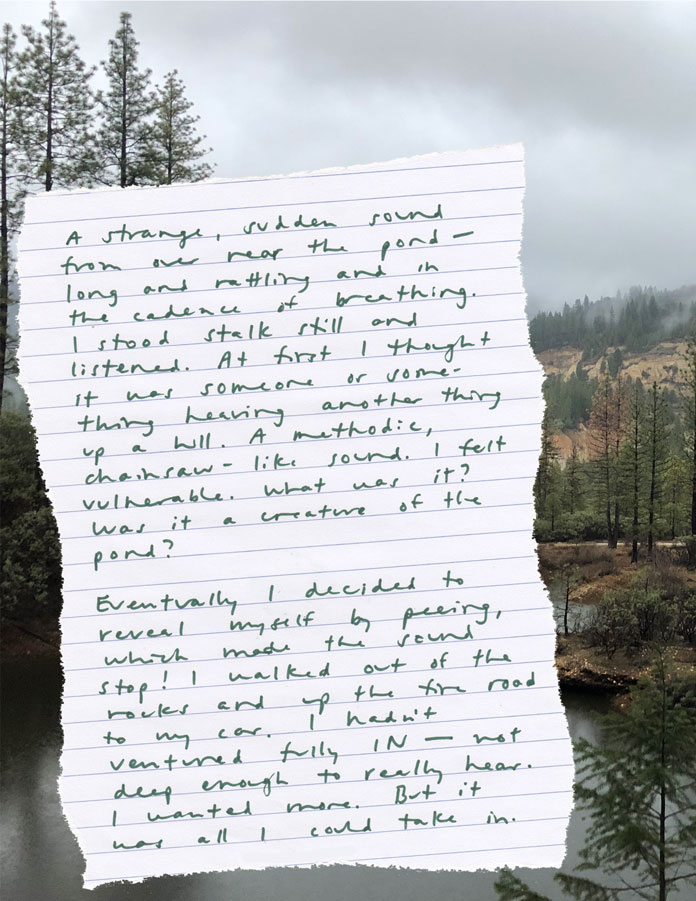 A strange, sudden sound
from over near the pond —
long and rattling and in
the cadence of breathing.
I stood stalk still and
listened. At first I thought
it was someone or some-
thing heaving another thing
up a hill. A methodic,
chainsaw-like sound. I felt
vulnerable. What was it?
Was it a creature of the
pond?
Eventually I decided to
reveal myself by peeing,
which made the sound
stop! I walked out of the
rocks and up the fire road
to my car. I hadn't
ventured fully IN — not
deep enough to really hear.
I wanted more. But it
was all I could take in.